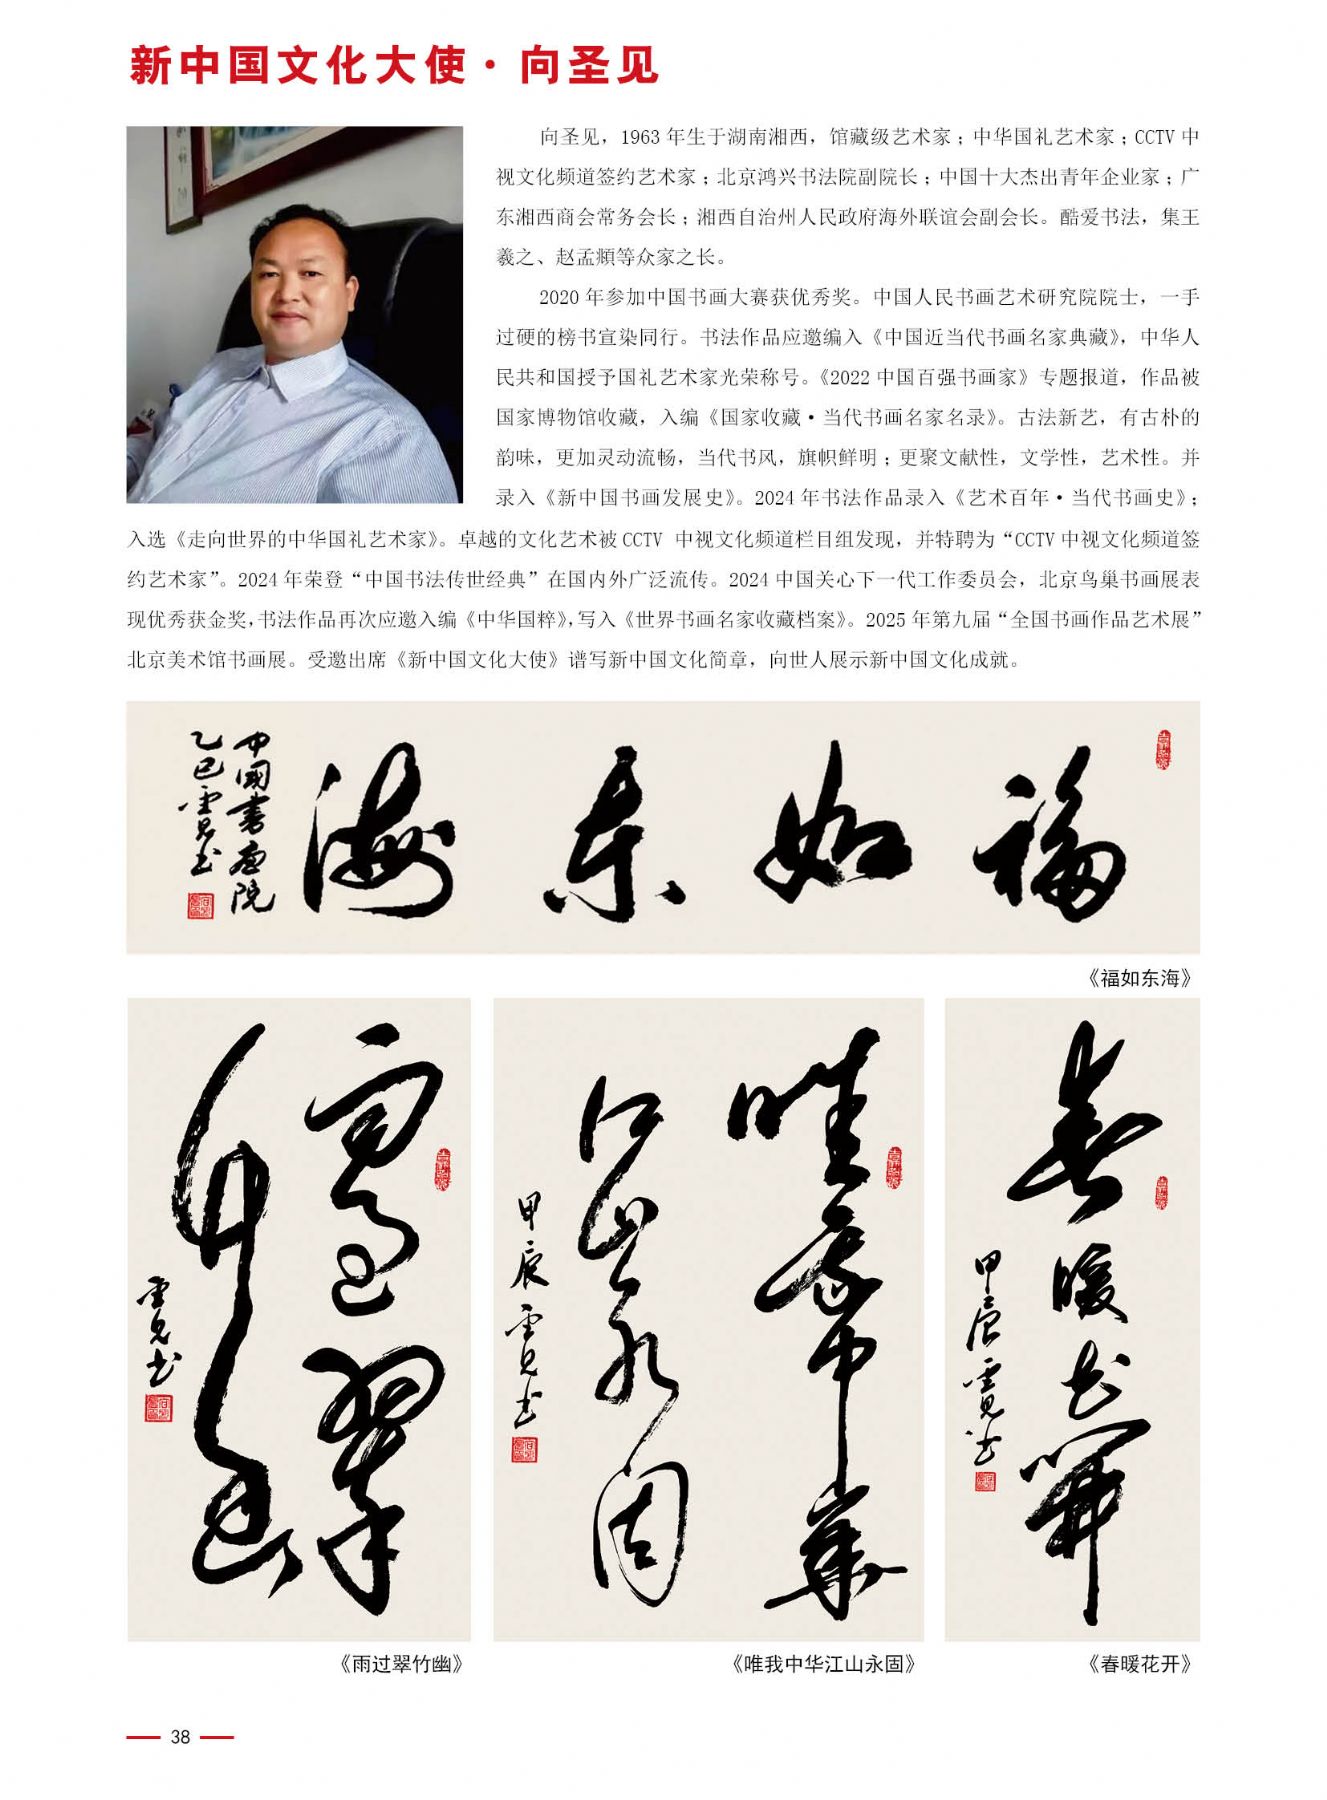 新中国文化大使·向圣见
向圣见，1963年生于湖南湘西，馆藏级艺术家；中华国礼艺术家；CCTV中
视文化频道签约艺术家；北京鸿兴书法院副院长；中国十大杰出青年企业家；广
东湘西商会常务会长；湘西自治州人民政府海外联谊会副会长。酷爱书法，集王
羲之、赵孟頫等众家之长。
2020年参加中国书画大赛获优秀奖。中国人民书画艺术研究院院士，一手
过硬的榜书宣染同行。书法作品应邀编入《中国近当代书画名家典藏》，中华人
民共和国授予国礼艺术家光荣称号。《2022中国百强书画家》专题报道，作品被
国家博物馆收藏，入编《国家收藏·当代书画名家名录》。古法新艺，有古朴的
韵味，更加灵动流畅，当代书风，旗帜鲜明；更聚文献性，文学性，艺术性。并
录入《新中国书画发展史》。2024年书法作品录入《艺术百年·当代书画史》；
入选《走向世界的中华国礼艺术家》。卓越的文化艺术被CCTV 中视文化频道栏目组发现，并特聘为“CCTV中视文化频道签
约艺术家”。2024年荣登“中国书法传世经典”在国内外广泛流传。2024中国关心下一代工作委员会，北京鸟巢书画展表
现优秀获金奖，书法作品再次应邀入编《中华国粹》，写入《世界书画名家收藏档案》。2025年第九届“全国书画作品艺术展”
北京美术馆书画展。受邀出席《新中国文化大使》谱写新中国文化简章，向世人展示新中国文化成就。
福如东海
中國書画院
乙巳雲见书
《福如东海》
雨过翠
竹幽
雲见书
《雨过翠竹幽》
唯我中華
江山永固
甲辰雲见书
《唯我中华江山永固》
春暖花開
甲辰雲见书
《春暖花开》
38